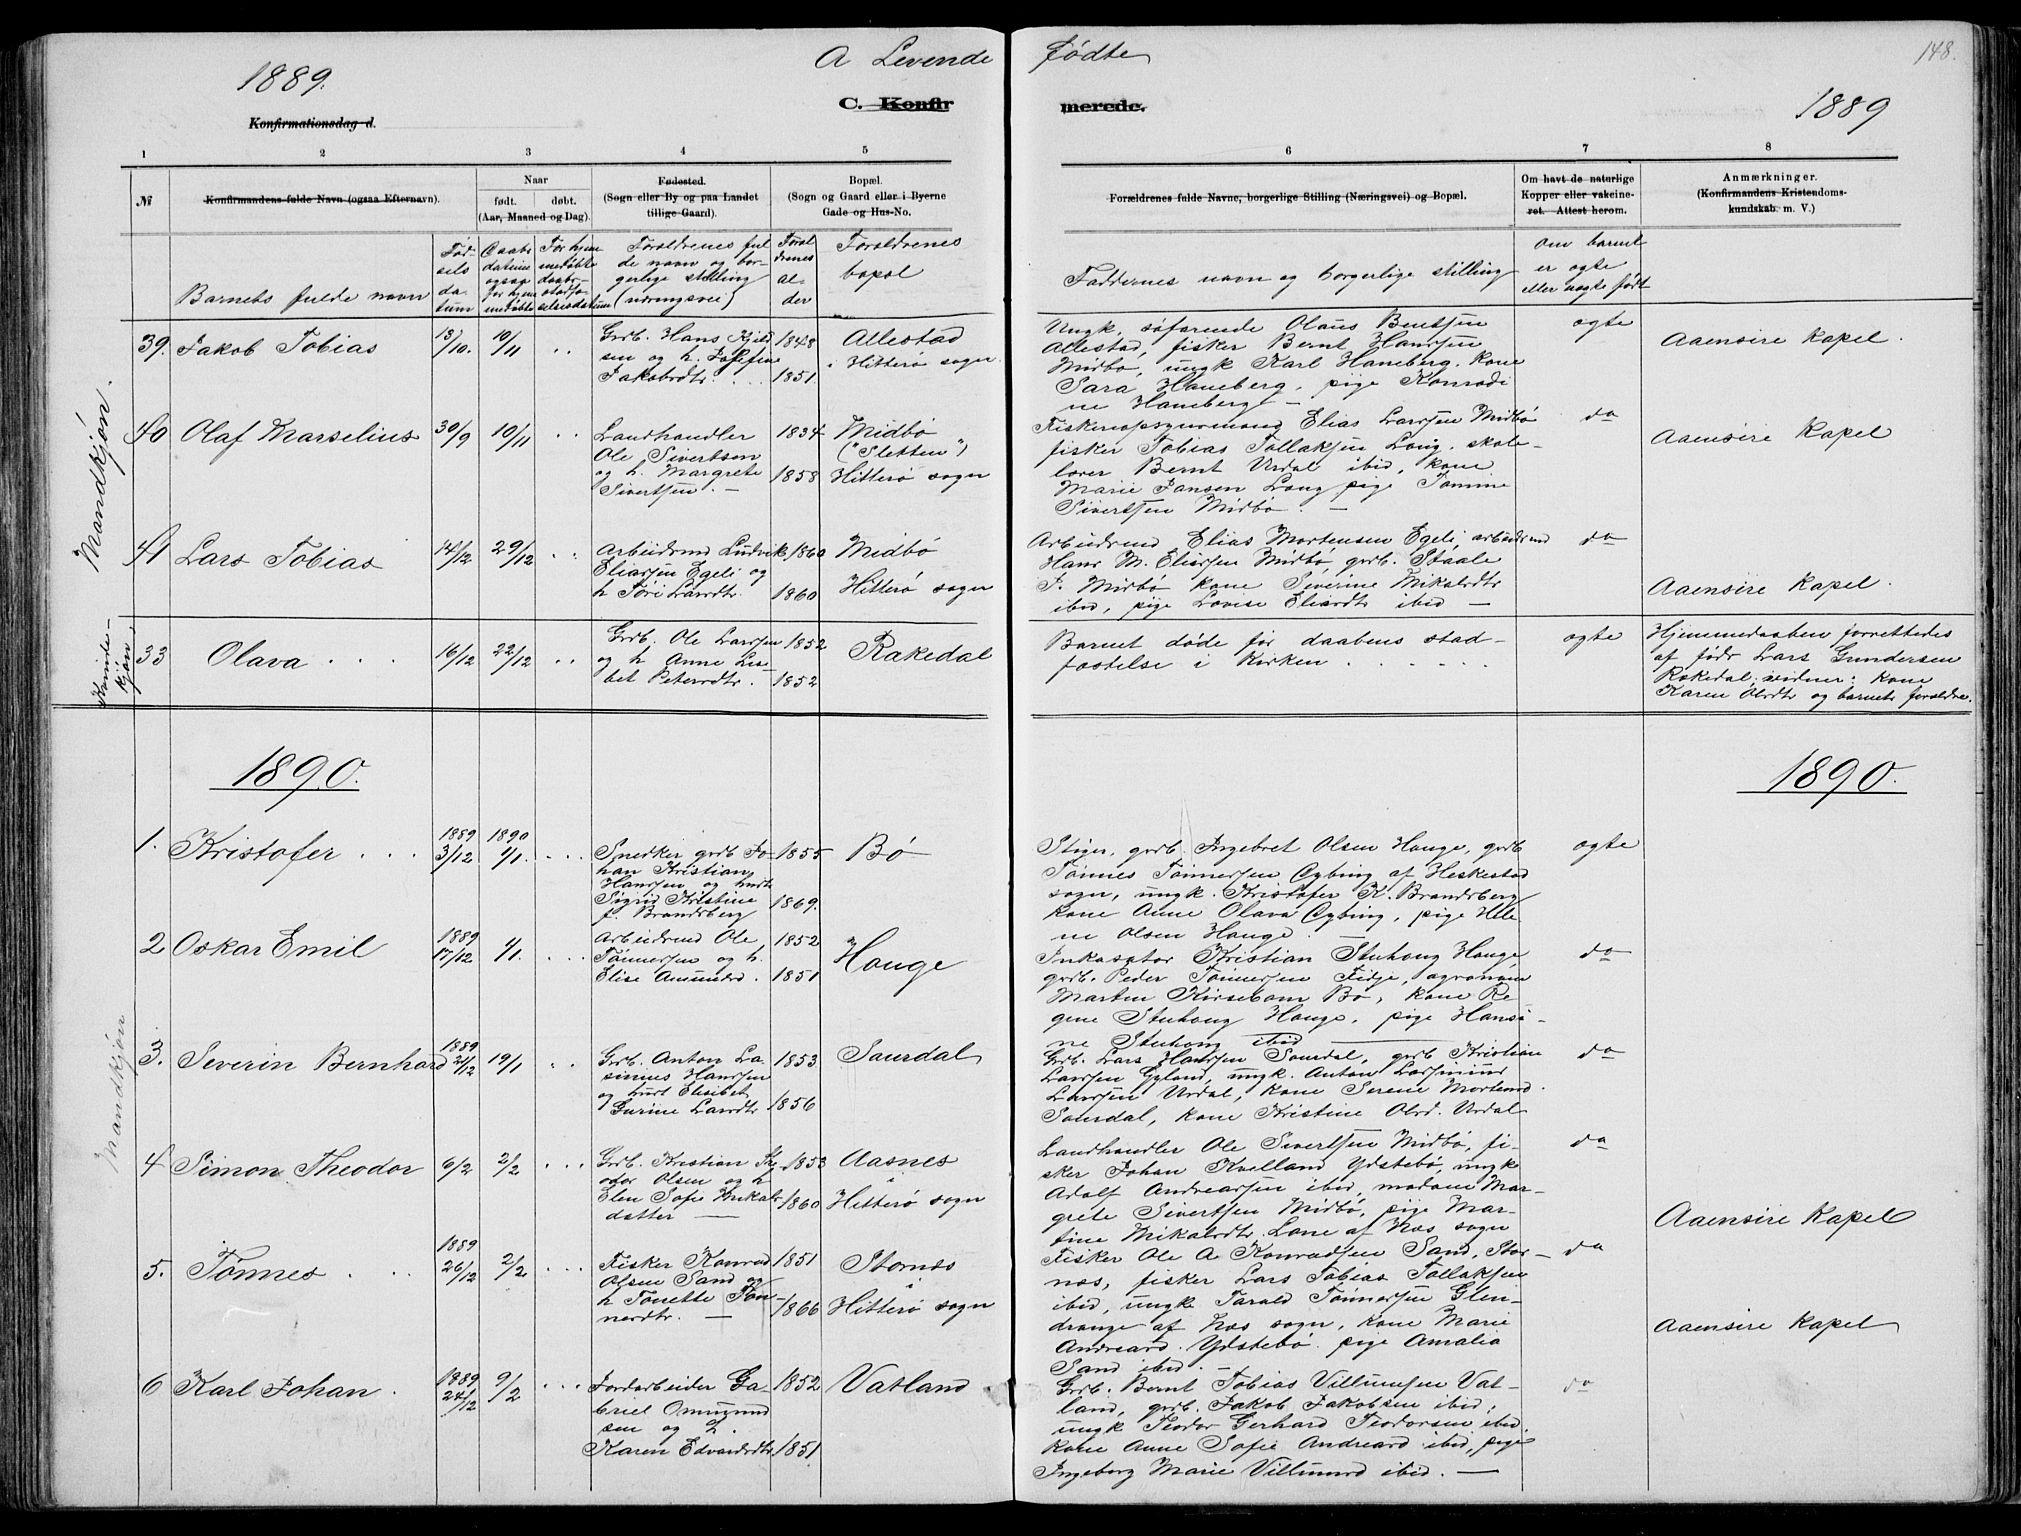 148.
A Levende fødte
1889.
C. Konfirmerede.
1889
Konfirmationsdag d.
1 2 3 4 5 6 7 8
№
Konfirmandens fulde Navn (ogsaa Efternavn).
Naar
født. døbt.
(Aar, Maaned og Dag).
Fødested.
(Sogn eller By og paa Landet
tillige Gaard).
Bopæl.
(Sogn og Gaard eller i Byerne
Gade og Hus-No.
Forældrenes fulde Navne, borgerlige Stilling (Næringsvei) og Bopæl.
Om havt de naturlige
Kopper eller vakcine-
ret. Attest herom.
Anmærkninger.
(Konfirmandens Kristendoms-
kundskab m. V.)
Barnets fulde navn
Fød-
sels
da-
tum
Daabs
datum
ogsaa
for hjem
medøbte
For hjem
medøbte
daabs
stadfæ
stelsesdatum
Forældrenes ful
de navn og bor-
gerlige stilling
(næringsvei)
Foræl
drenes
al-
der
Forældrenes
bopæl
Faddernes navn og borgerlige stilling
Om barnet
er ægte
eller uægte født
Mandkjøn.
39. Jakob Tobias
13/10. 10/11
Grb. Hans Kjeld
sen og h. Josefine
Jakobsdtr.
1848
1851.
Allestad
i Hitterø sogn.
Ungk. søfarende Olaus Berntsen
Allestad, fisker Bernt Hanssen
Midbø, ungk Karl Haneberg. kone
Sara Haneberg, pige Konradi
ne Haneberg —
ægte
Aaensire Kapel.
40 Olaf Marselius
30/9 10/11
Landhandler
Ole Sivertsen
og h. Margrete
Sivertsen. —
1834
1858
Midbø
("Sletten")
Hitterø sogn
Fiskeriopsynsmand Elias Larssen Midbø
fisker Tobias Tollaksen Log, skole-
lærer Bernt Urdal ibid, kone
Marie Jansen Log pige Tomine
Sivertsen Midbø. —
do
Aaensire Kapel
41 Lars Tobias
14/12 29/12
Arbeidsmd Ludvik
Eliassen Egeli og
h Tøri Larsdtr.
1860
1860
Midbø
Hitterø sogn
Arbeidsmd Elias Mortensen Egeli, arbeidsmd
Hans M. Eliassen Midbø, grb. Staale
F. Midbø kone Severine Mikalsdtr
ibid, pige Lovise Eliasdtr ibid —
do
Aaensire Kapel.
Kvinde-
kjøn.
33 Olava
16/12 22/12
Grb. Ole Larssen
og h Anne Lis-
bet Petersdtr.
1852
1852
Rækedal
Barnet døde før daabens stad-
fæstelse i Kirken
ægte
Hjemmedaaben forrettedes
af fødr Lars Gundersen
Rækedal; vidner: kone
Karen Olsdtr og barnets forældre.
1890.
1890.
Mandkjøn
1. Kristofer
1889
3/12
1890
1/1.
Snedker grb Jo-
han Kristian
Hanssen og hust
Sigrid Kristine
f. Brandsberg
1855
1869.
Bø
Stiger, grb. Ingebret Olsen Hauge, grb
Tønnes Tønnessen Eybing af Heskestad
sogn, ungk. Kristofer K. Brandsberg
kone Anne Olava Eybing, pige Hele
ne Olsen Hauge. —
ægte
2 Oskar Emil
1889
17/12 1/1.
Arbeidsmd Ole
Tønnessen og h.
Elise Amundsd.
1852
1851
Hauge
Inkasator Kristian Stuhoug Hauge,
grb. Peder Tønnessen Fidje, agronom
Marten Kirsebom Bø, kone Re
gine Stuhoug Hauge, pige Hansi-
ne Stuhoug ibid
do
3. Severin Bernhard
1889
21/12 19/1
Grb. Anton La-
sinius Hanssen
og hust Elisabet
Gurine Larsdtr
1853
1856
Saurdal
Grb. Lars Hanssen Saurdal, grb Kristian
Larssen Gyland, ungk. Anton Larsmund
Larssen Urdal, kone Serene Mortensd.
Saurdal, kone Kristine Olsd. Urdal
do
4 Simon Theodor
6/2 2/2
Grb. Kristian Te-
odor Olsen og h
Elen Sofie Mikals-
datter —
1853
1860
Aasnes
i
Hitterø sogn
Landhandler Ole Sivertsen Midbø, fi-
sker Johan Kvelland Ydstebø, ungk
Adolf Andreassen ibid, madame Mar-
grete Sivertsen Midbø, pige Mar-
tine Mikalsdtr. Lone af Næs sogn
do
Aaensire Kapel
5. Tønnes
1889
26/12 2/2
Fisker Konrad
Olsen Sand og
h Tonette Tøn-
nesdtr. —
1851
1866
Stornes
i
Hitterø sogn
Fisker Ole A Konradsen Sand, Stor-
næs, fisker Lars Tobias Tollaksen
ibid, ungk Tarald Tønnessen Glen-
drange af Næs sogn, kone Marie
Andreasd. Ydstebø. pige Amalia
Sand ibid. —
do
Aaensire Kapel
6 Karl Johan
1889
24/12 9/2
Jordarbeider Ga-
briel Omunds
sen og h.
Karen Edvardsdtr
1852
1851
Vatland
Grb. Bernt Tobias Villumsen Vat-
land, grb. Jakob Jakobsen ibid,
ungk Teodor Gerhard Teodorsen ibid.
kone Anne Sofie Andreasd ibid, pige
Ingeborg Marie Villumsd ibid. —
do